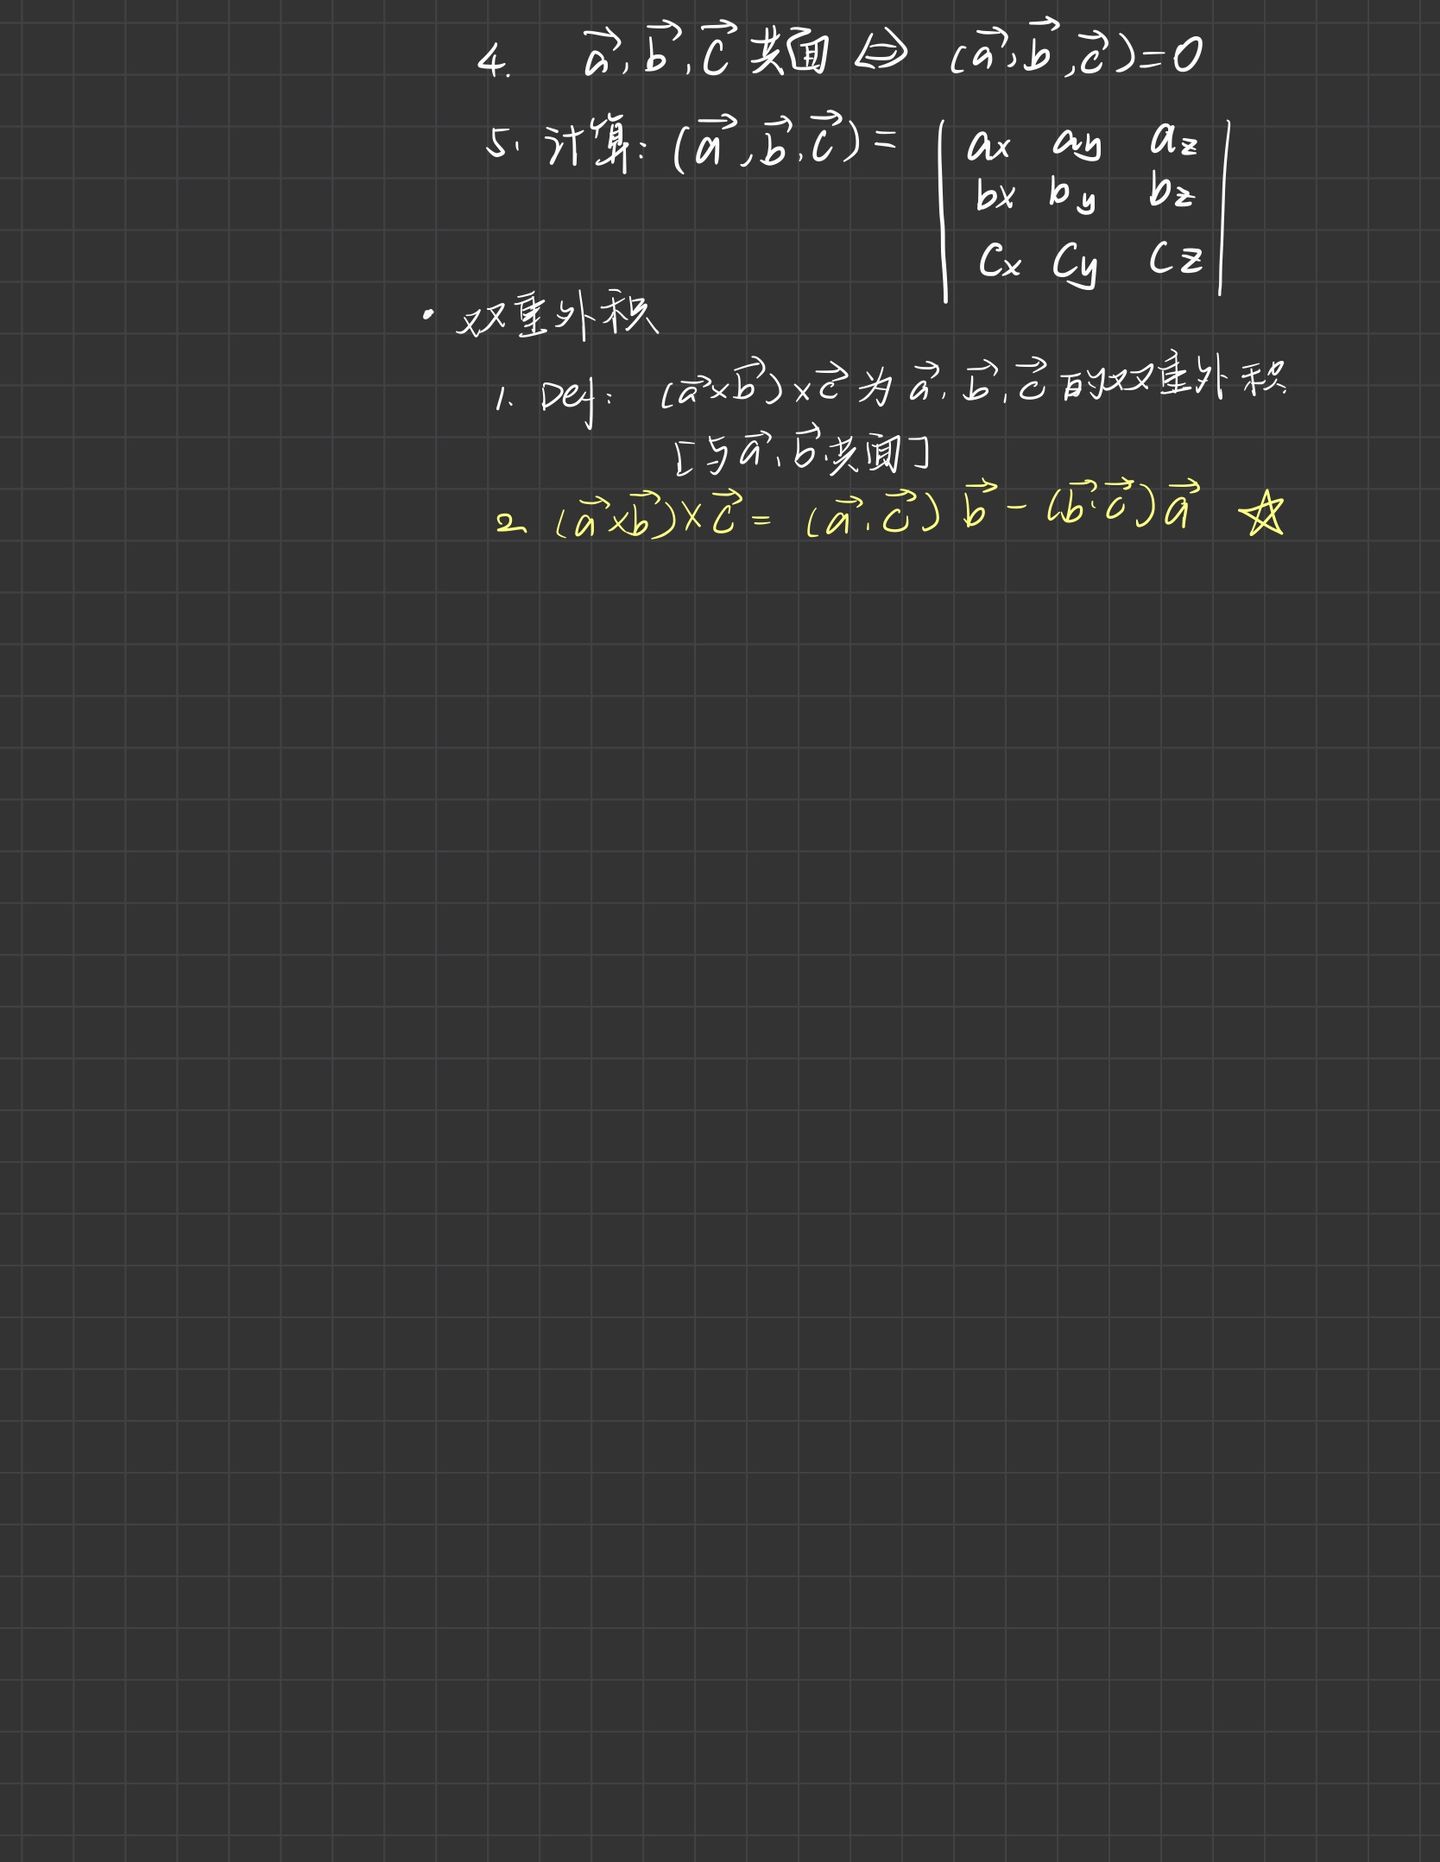 4. a⃗, b⃗, c⃗ 共面 ⇔ (a⃗, b⃗, c⃗)=0
5. 计算: (a⃗, b⃗, c⃗) = | ax ay az |
| bx by bz |
| cx cy cz |
· 双重外积
1. Def: (a⃗×b⃗)×c⃗ 为 a⃗, b⃗, c⃗ 的双重外积
[与a⃗, b⃗共面]
2. (a⃗×b⃗)×c⃗ = (a⃗·c⃗) b⃗ - (b⃗·c⃗) a⃗ ☆